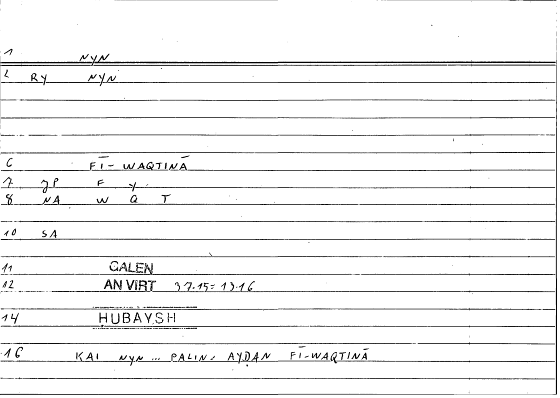 1 NYN
2 RY NYN
6 FĪ- WAQTINĀ
7 JP F Y
8 NA W Q T
10 SA
11 GALEN
12 AN VIRT 37.15= 13.16
14 HUBAYSH
16 KAI NYN ... PALIN, AYḌAN FĪ-WAQTINĀ